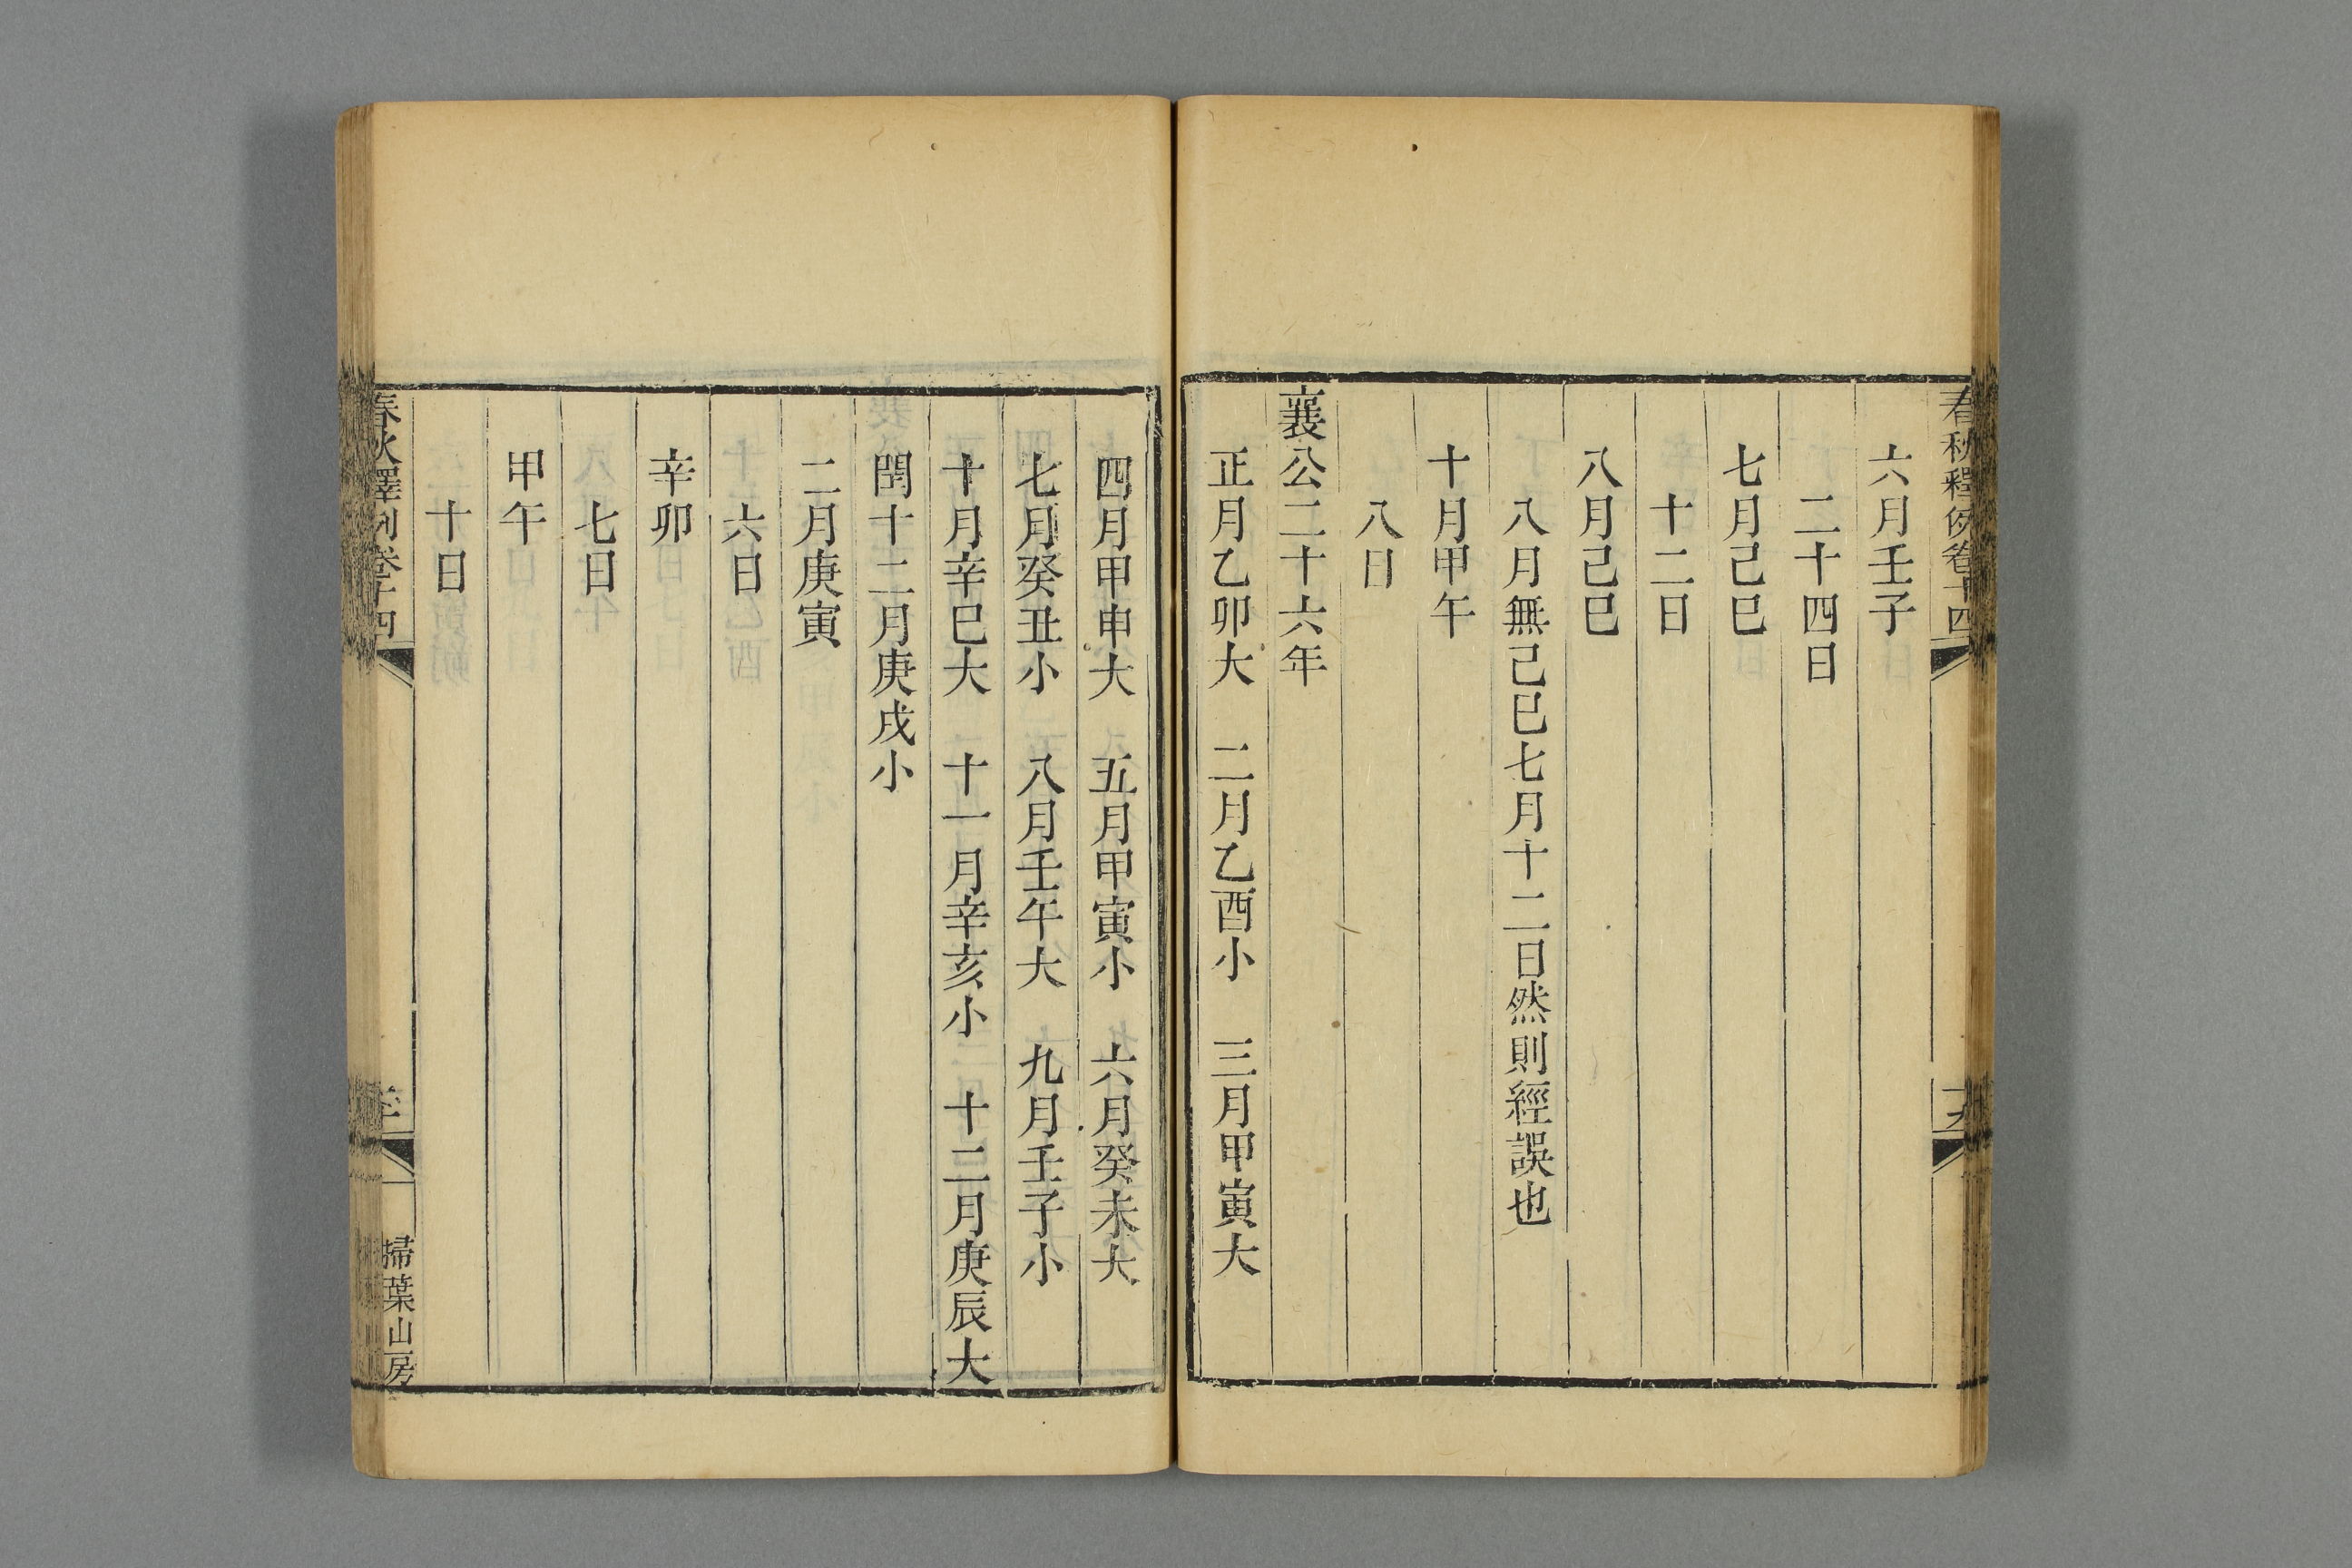 春秋釋例卷十四
六月壬子
二十四日
七月己巳
十二日
八月己巳
八月無己巳七月十二日然則經誤也
十月甲午
八日
襄公二十六年
正月乙卯大　二月乙酉小　三月甲寅大
四月甲申大　五月甲寅小　六月癸未大
七月癸丑小　八月壬午大　九月壬子小
十月辛巳大　十一月辛亥小　十二月庚辰大
閏十二月庚戌小
二月庚寅
六日
辛卯
七日
甲午
十日
春秋釋例卷十四
掃葉山房